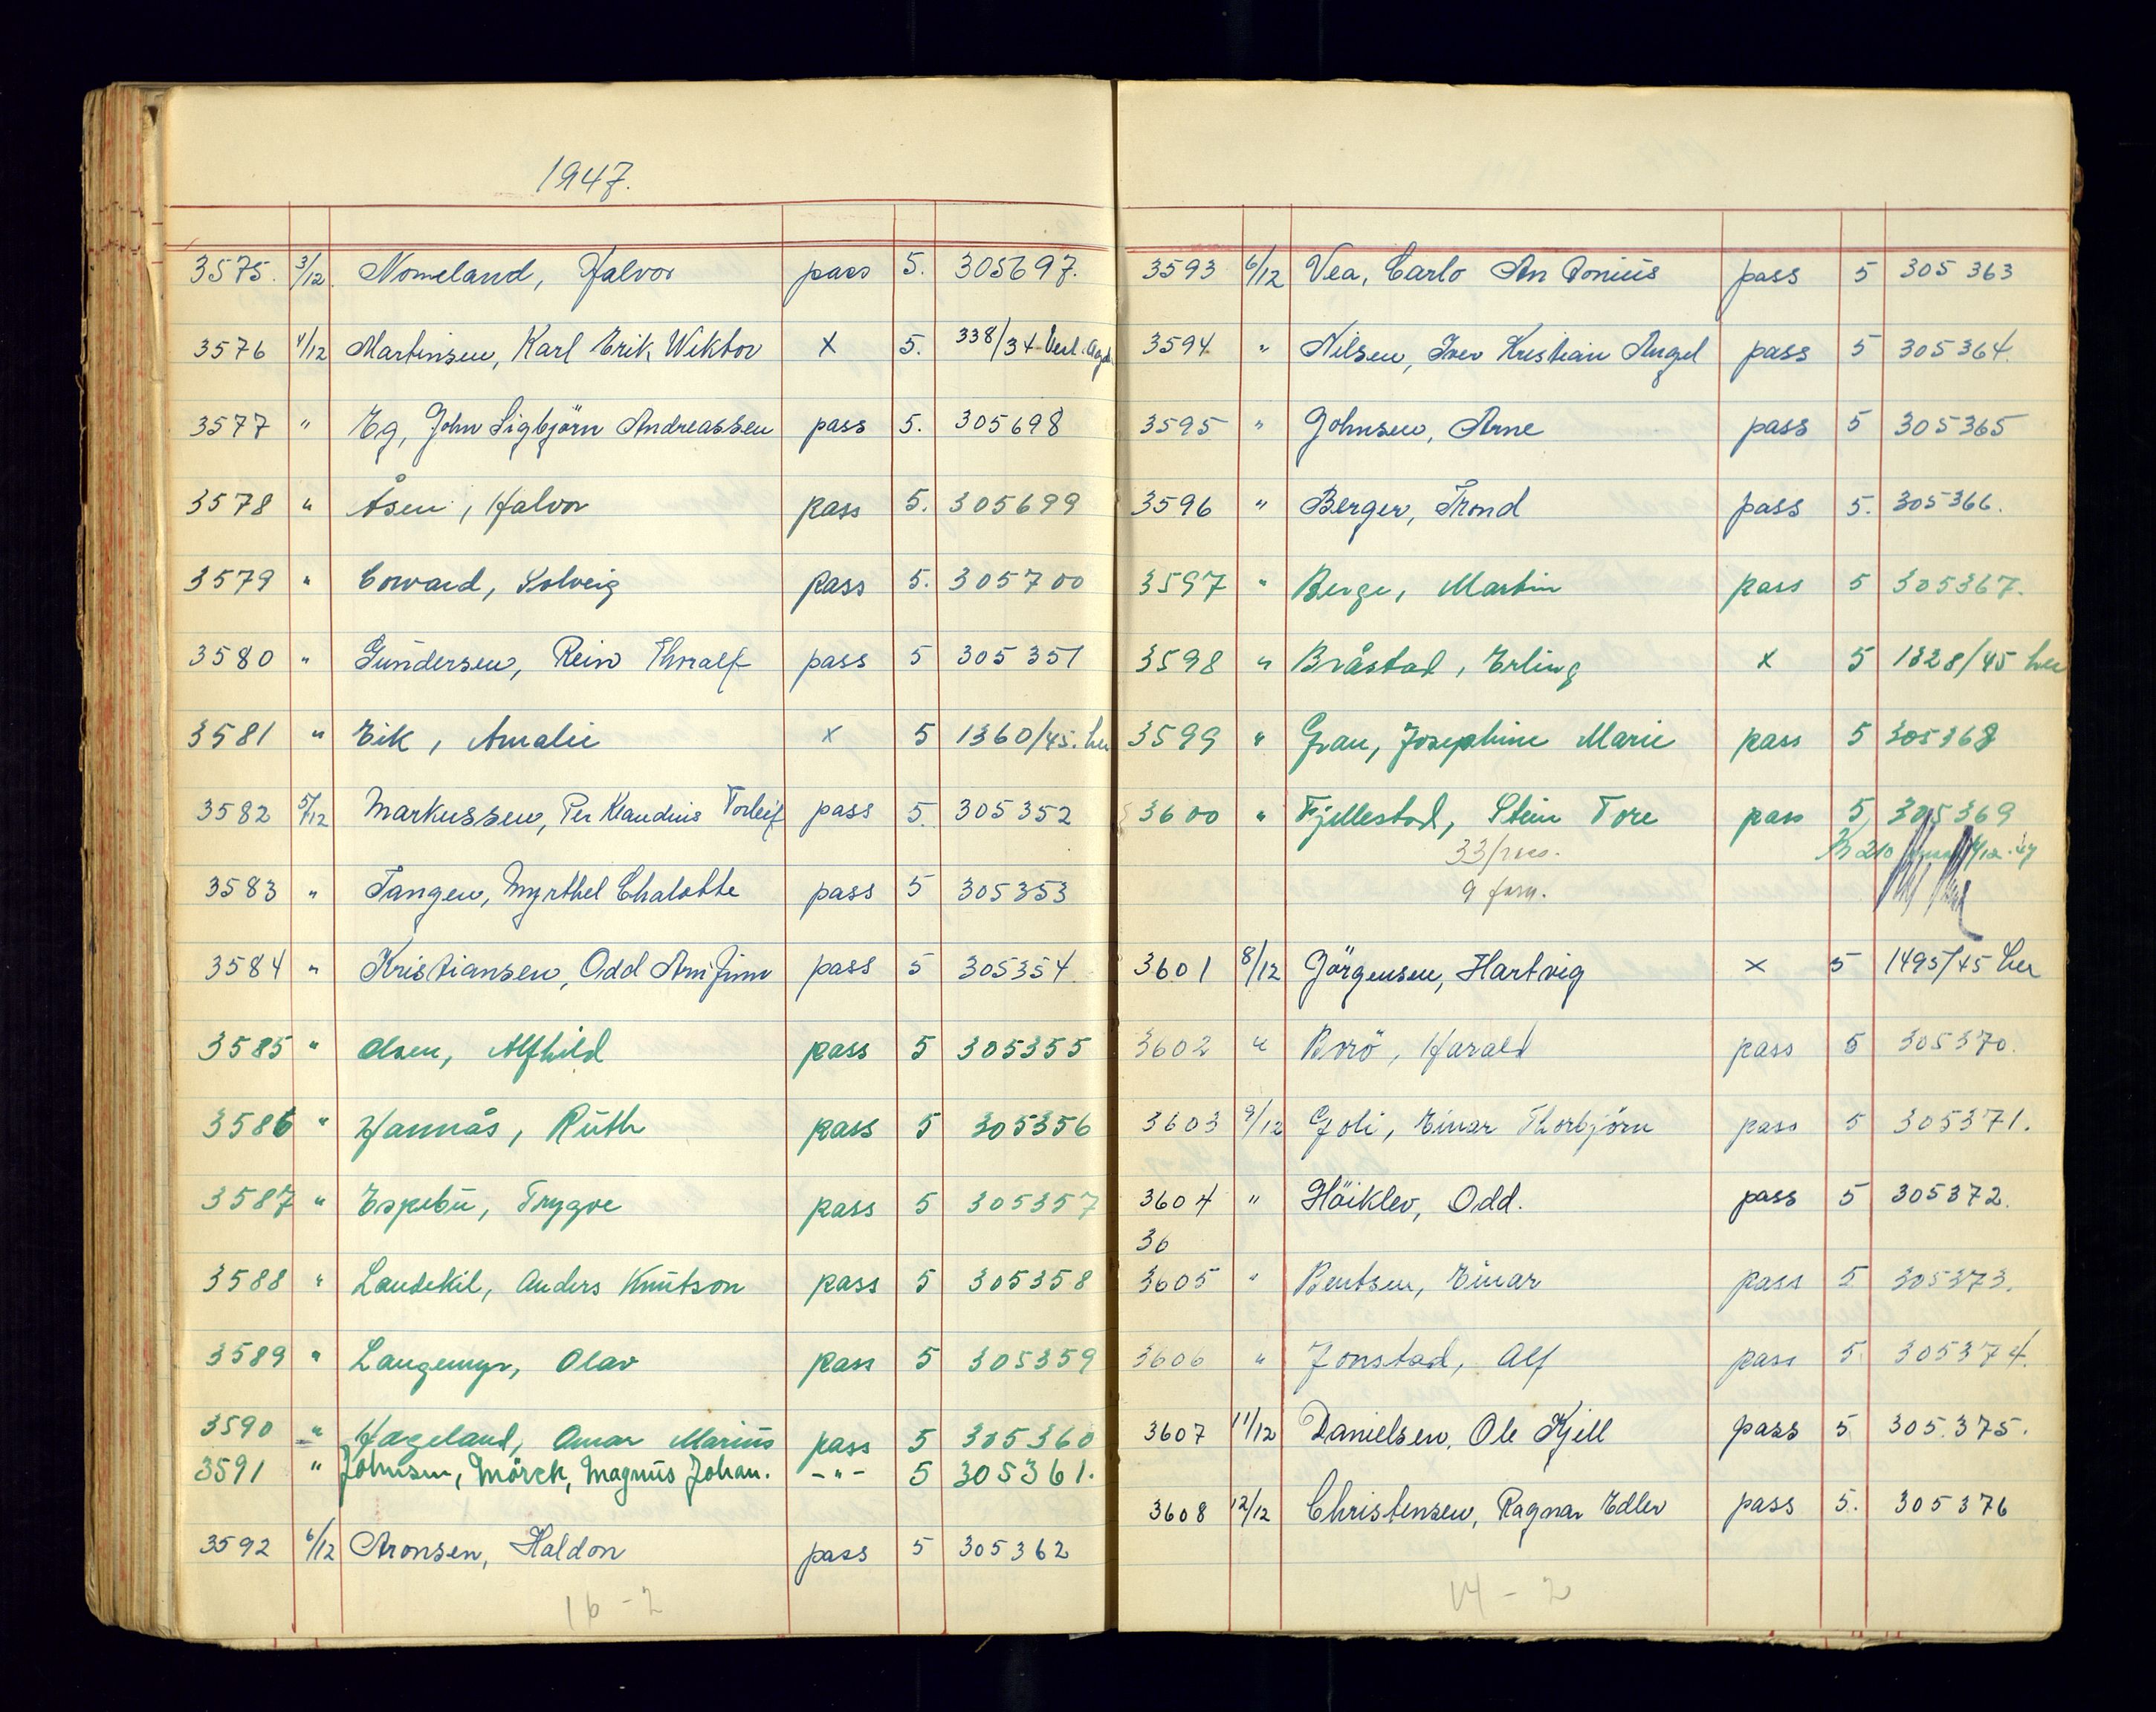 1947.
3575. 3/12 Nomeland, Halvor pass 5. 305697.
3576 4/12 Martinsen, Karl Erik Wiktor X 5. 338/34 Vest. Agd.
3577 " Eg, John Sigbjörn Andreassen pass 5. 305698
3578 " Åsen, Halvor pass 5. 305699
3579 " Coward, Solveig pass 5. 305700
3580 " Gundersen, Rein Thoralf pass 5 305351
3581 " Eik, Amalie x 5 1360/45. her
3582 5/12 Markussen, Per Klaudius Torleif pass 5. 305352
3583 " Tangen, Myrthel Chalotte pass 5 305353
3584 " Kristiansen, Odd Arnfinn pass 5 305354.
3585 " Olsen, Alfhild pass 5 305355
3586 " Hannås, Ruth pass 5 305356
3587 " Espebu, Trygve pass 5 305357
3588 " Landekil, Anders Knutson pass 5 305358
3589 " Langemyr, Olav pass 5 305359
3590 " Hageland, Omar Marius pass 5 305360
3591 " Johnsen, Mörck, Magnus Johan. -"- 5 305361.
3592 6/12 Aronsen, Haldon pass 5 305362
16 - 2
3593 6/12 Vea, Carlo Antonius pass 5 305363
3594 " Nilsen, Iver Kristian Angel pass 5 305364.
3595 " Johnsen, Arne pass 5 305365
3596 " Berger, Trond pass 5. 305366.
3597 " Berge, Martin pass 5 305367.
3598 " Bråstad, Erling x 5 1328/45 her
3599 " Grau, Josephine Marie pass 5 305368
3600 " Fjellestad, Stein Tore pass 5 305369
33/pass. Kr 210 /12.47
9 forn.
3601 8/12 Jörgensen, Hartvig x 5 1495/45 her
3602 " Borö, Harald pass 5 305370.
3603 9/12 Goli, Einar Thorbjörn pass 5 305371.
3604 " Höiklev, Odd. pass 5 305372.
36
3605 " Bentsen, Einar pass 5 305373.
3606 " Jonstad, Alf pass 5. 305374.
3607 11/12 Danielsen, Ole Kjell pass 5 305.375.
3608 12/12 Christensen, Ragnar Edler pass 5. 305376
14 - 2